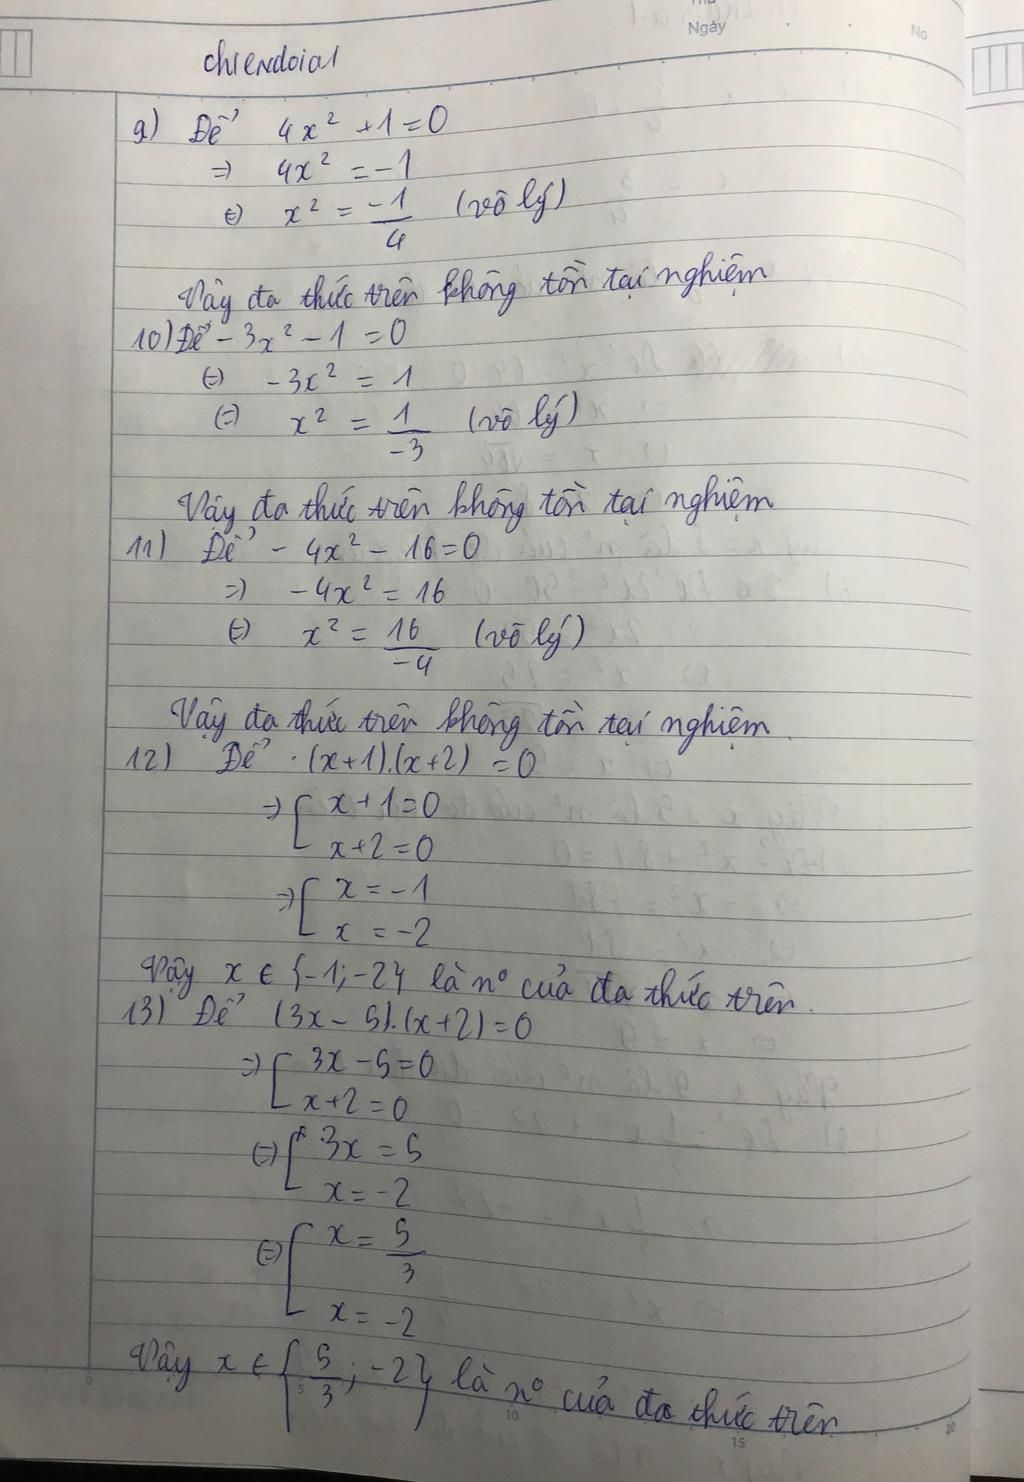 Thứ
Ngày No.
chiendoia1
9) Để 4x² + 1 = 0
=> 4x² = -1
(=) x² = -1/4 (vô lý)
Vậy đa thức trên không tồn tại nghiệm
10) Để - 3x² - 1 = 0
(=) -3x² = 1
(=) x² = 1/-3 (vô lý)
Vậy đa thức trên không tồn tại nghiệm
11) Để - 4x² - 16 = 0
=) - 4x² = 16
(=) x² = 16/-4 (vô lý)
Vậy đa thức trên không tồn tại nghiệm
12) Để (x+1).(x+2) = 0
=) [ x+1=0
x+2=0
=) [ x = -1
x = -2
Vậy x ∈ {-1; -2} là nº của đa thức trên.
13) Để (3x - 5).(x+2) = 0
=) [ 3x - 5 = 0
x+2 = 0
(=) [ 3x = 5
x = -2
(=) [ x = 5/3
x = -2
Vậy x ∈ { 5/3 ; -2} là nº của đa thức trên
5 10 15 20